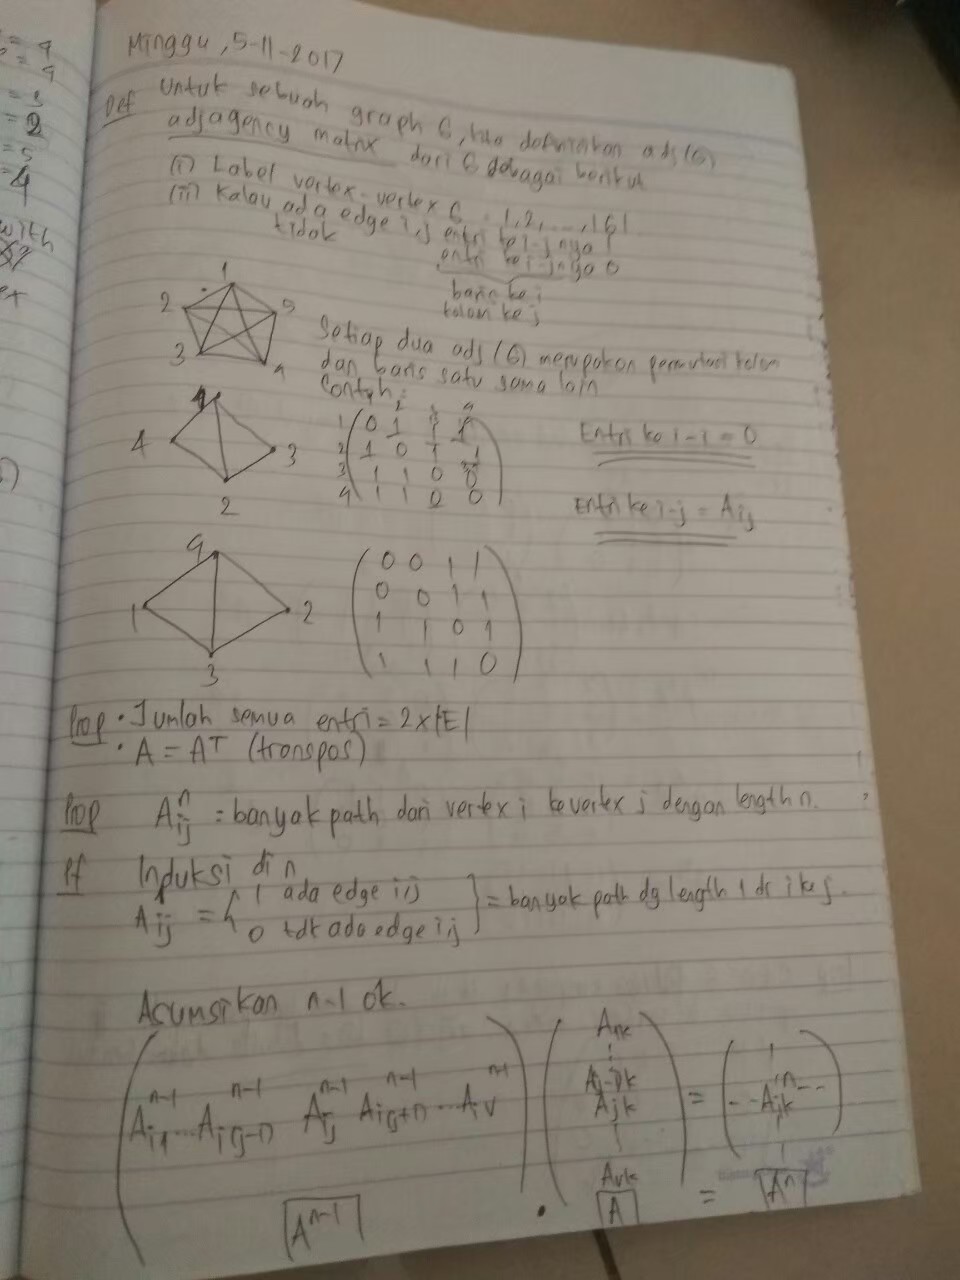 = 4
= 4
= 3
= 2
= 5
= 4
with
Minggu, 5-11-2017
Def Untuk sebuah graph G, kita definisikan adj(G)
adjagency matrix dari G sebagai berikut
(i) Label vertex-vertex G 1,2,...,|G|
(ii) Kalau ada edge i,j entri ke i-jnya 1
tidak entri ke i-jnya 0
baris ke i
kolom ke j
1
2 5
3 4
Setiap dua adj (G) merupakan permutasi kolom
dan baris satu sama lain
Contoh:
1
4 3
2
2 3 4
1 0 1 1 1
2 1 0 1 1
3 1 1 0 0
4 1 1 0 0
Entri ke i-i = 0
Entri ke i-j = Aij
4
1 2
3
0 0 1 1
0 0 1 1
1 1 0 1
1 1 1 0
Prop • Jumlah semua entri = 2x|E|
• A = AT (transpos)
Prop A^n ij = banyak path dari vertex i ke vertex j dengan length n.
Pf Induksi di n
A^1 ij = { 1 ada edge i,j
0 tdk ada edge i,j } = banyak path dg length 1 dr i ke j.
Asumsikan n-1 ok.
n-1 n-1 n-1 n-1 n-1
Ai1 ... Ai(j-1) Aij Ai(j+1) ... Aiv
Aj-1k
Ajk
Avk
= -- A^n jk --
A^n-1 • A = A^n